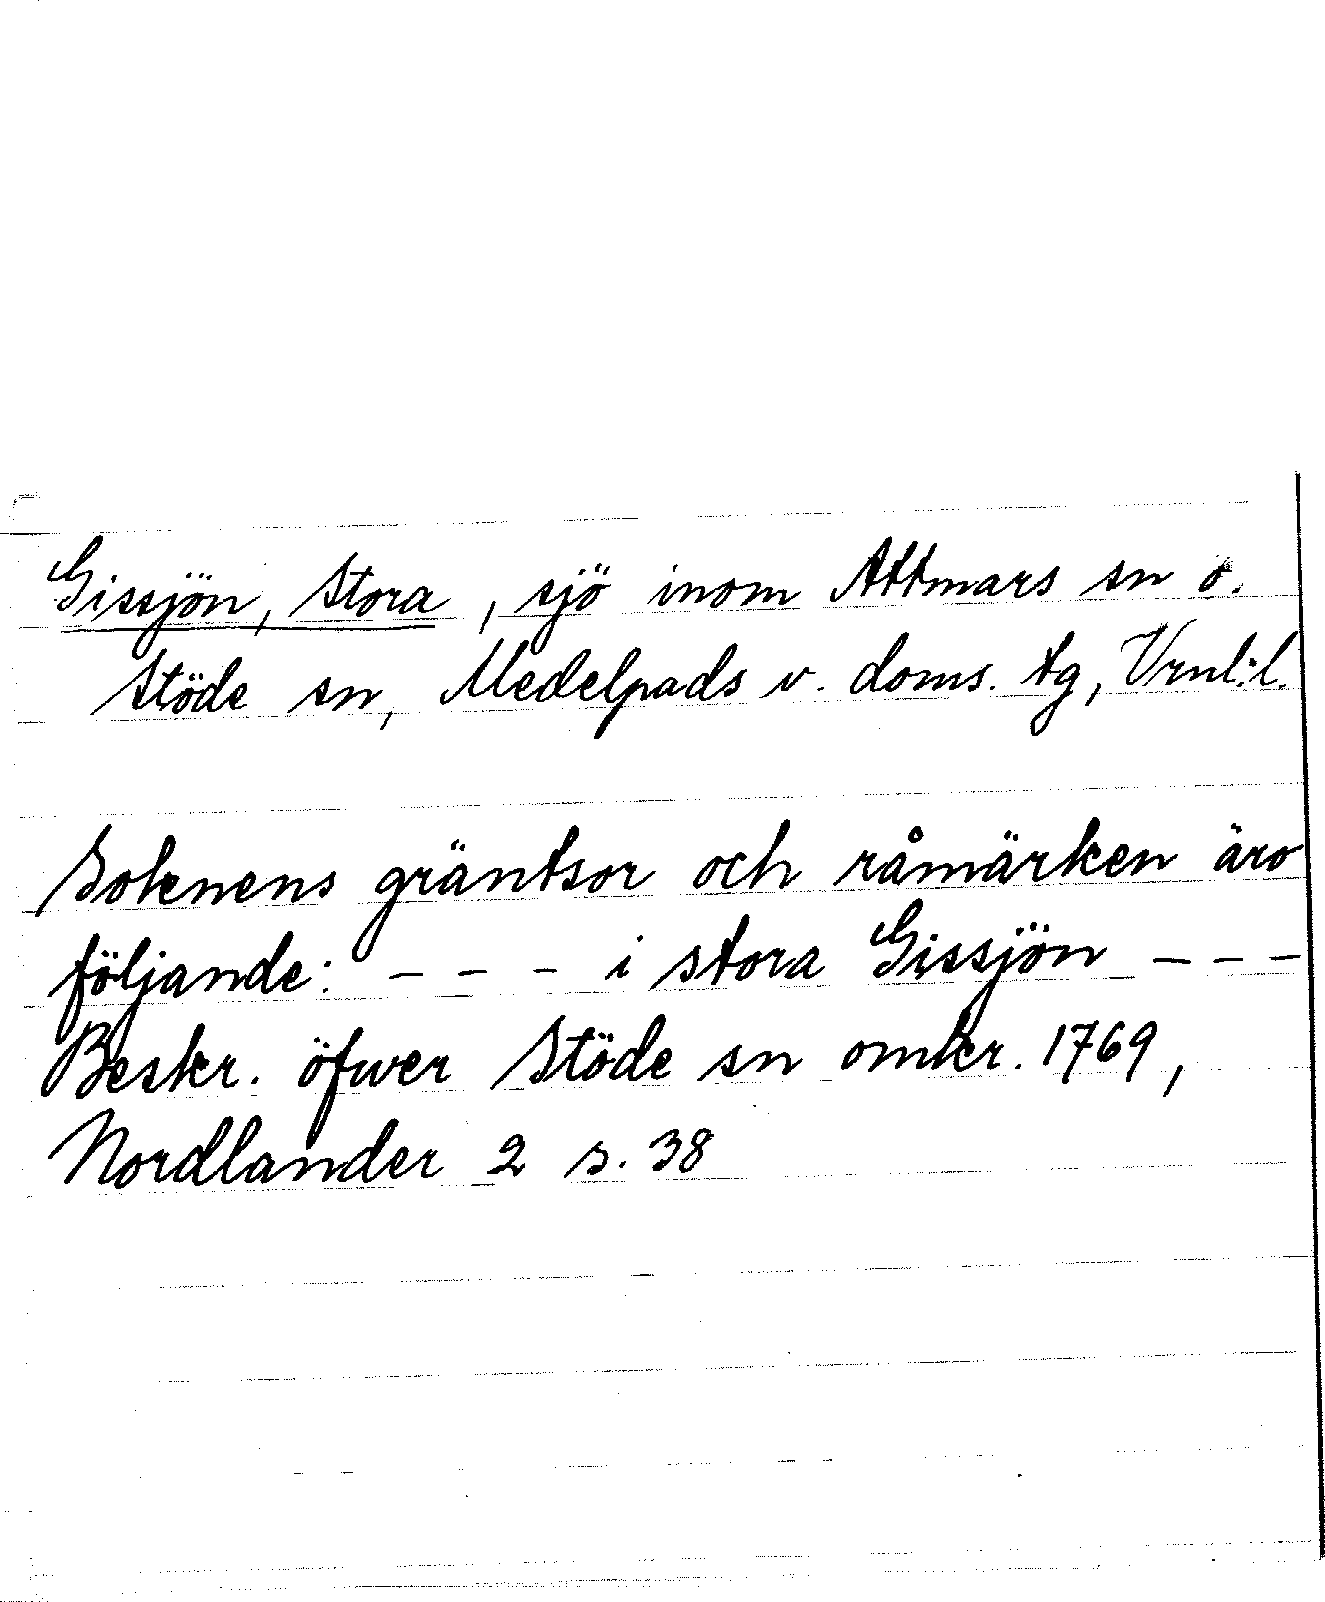 Gissjön, Stora, sjö inom Attmars sn o.
Stöde sn, Medelpads v. doms. tg, Vrnl:l.
Soknens gräntsor och råmärken äro
följande: – – – i stora Gissjön – – –
Beskr. öfwer Stöde sn omkr. 1769,
Nordlander 2 s. 38